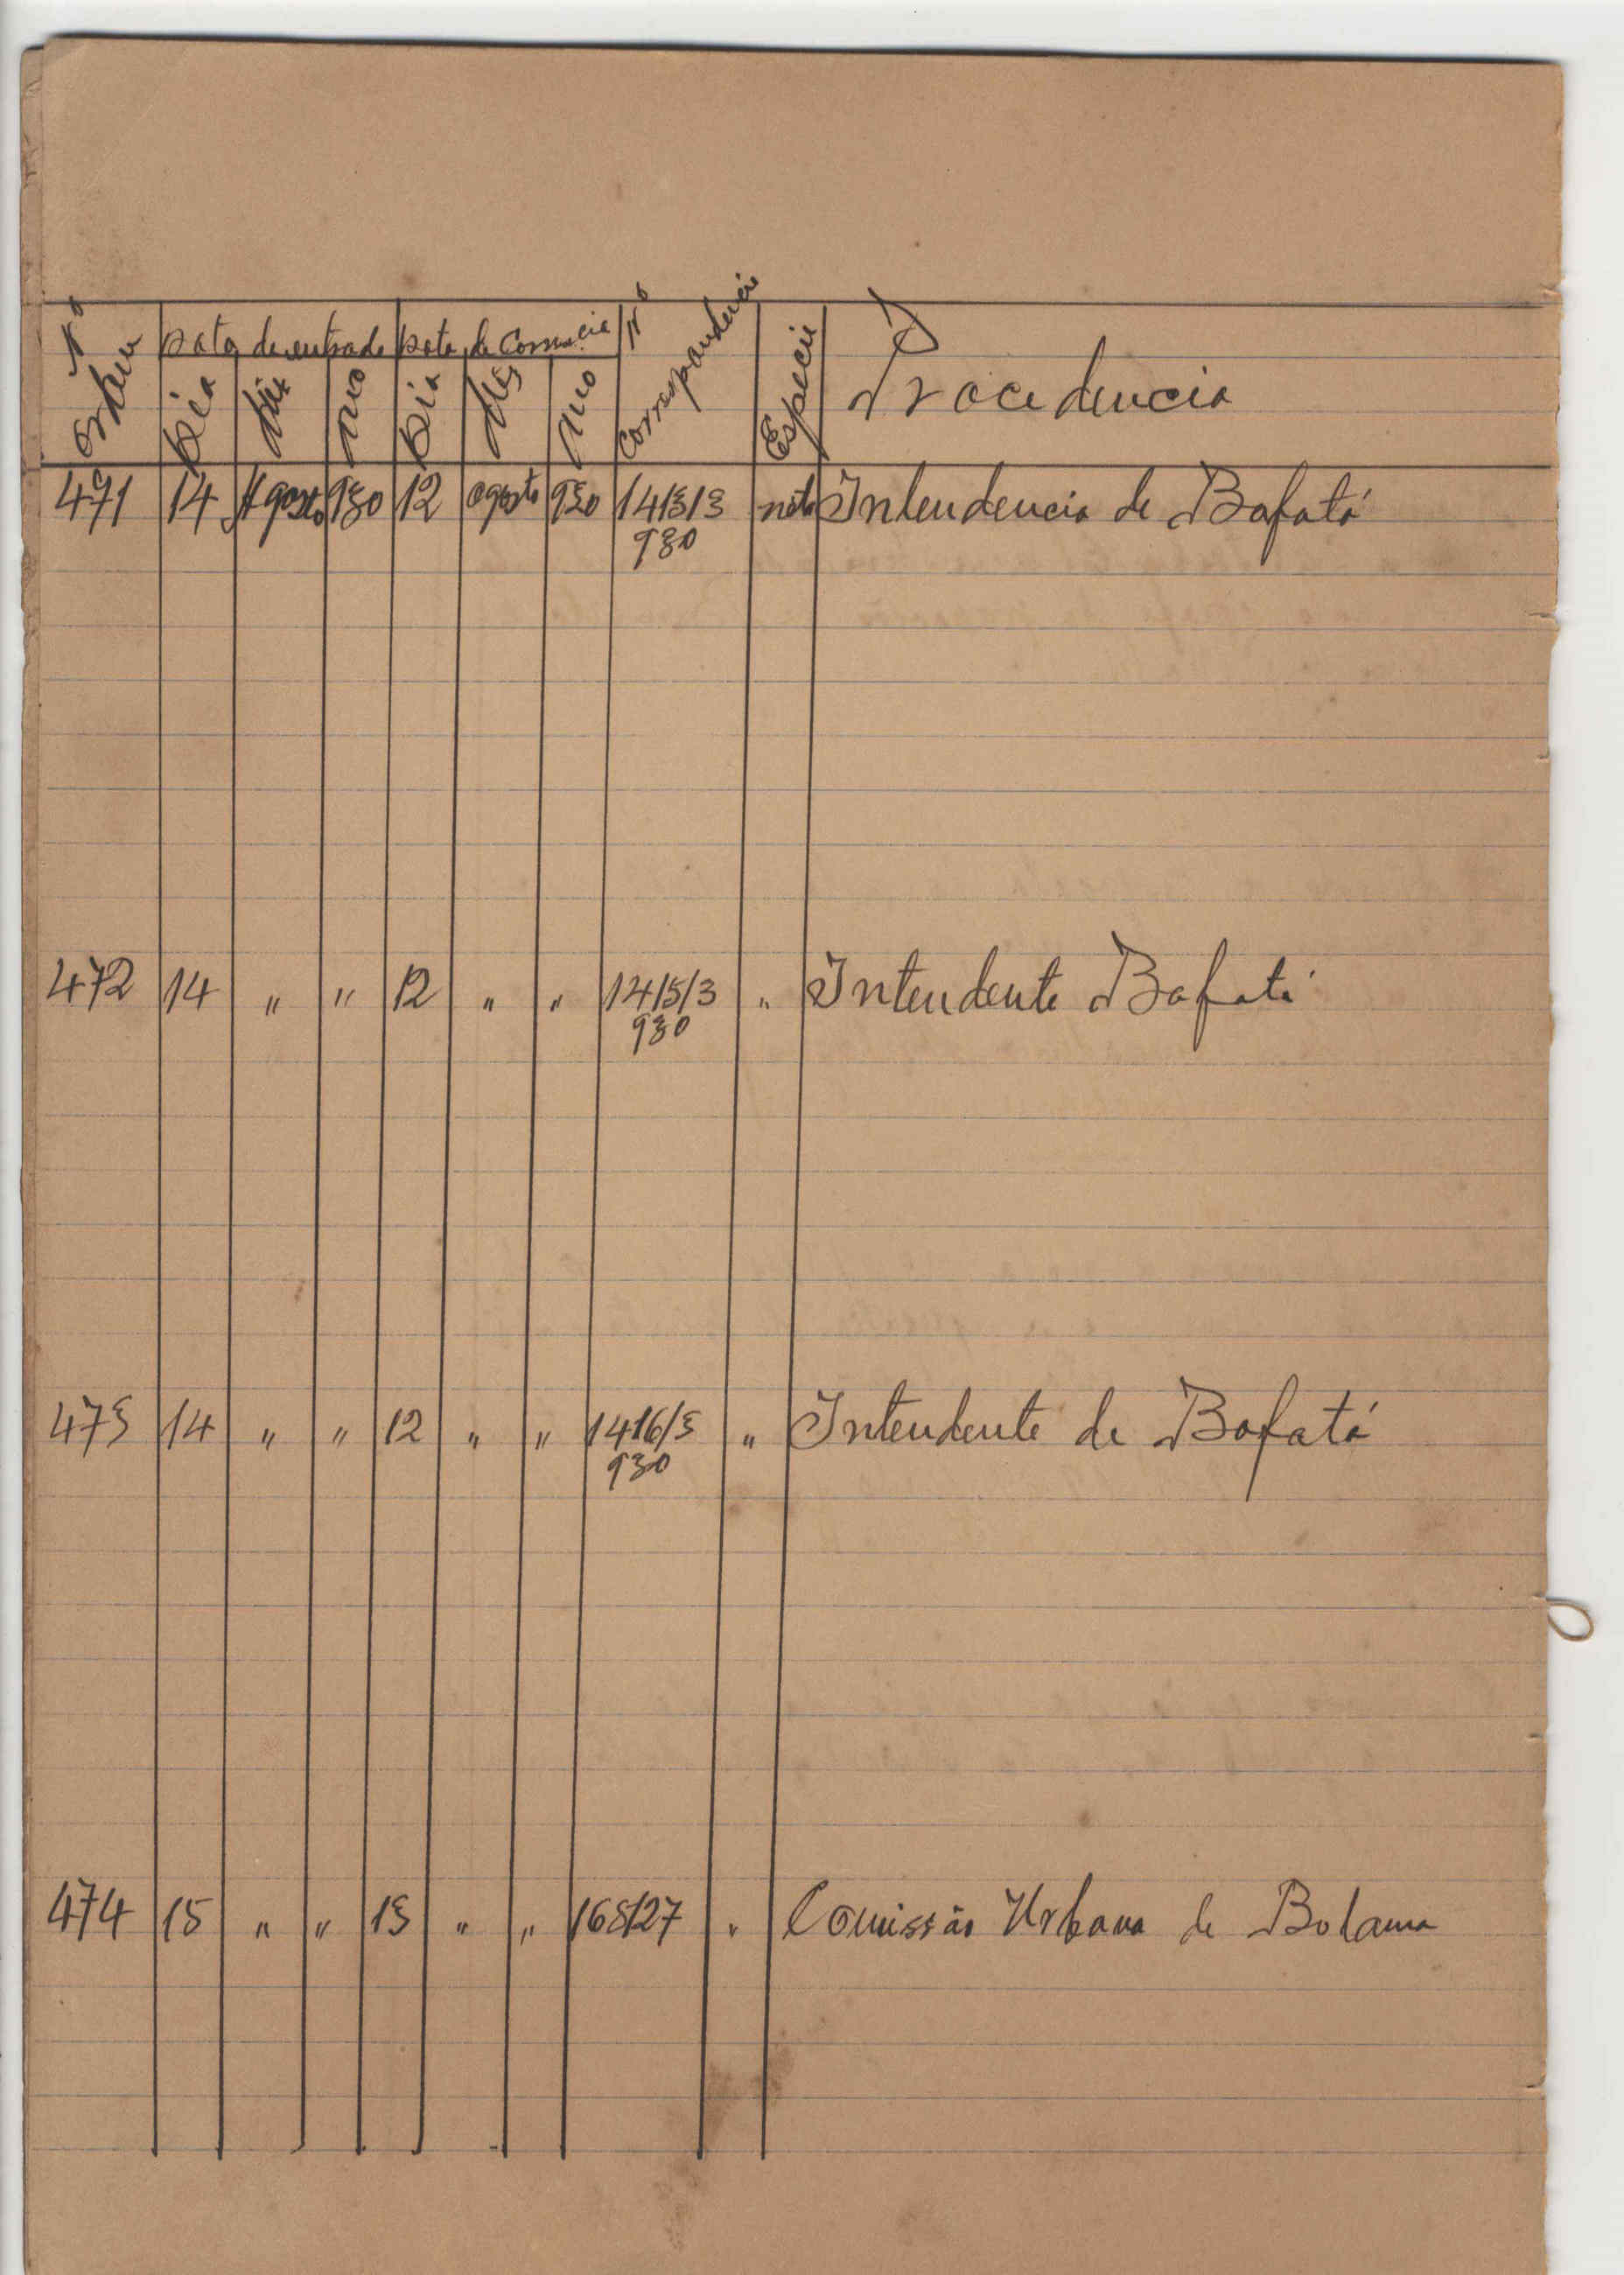 Nº Ordem Data de entrada Data de Corr.cia Nº Correspondencia Especie Procedencia
Dia Mês Ano Dia Mês Ano
471 14 Agosto 930 12 agosto 930 1413/3 nota Intendencia de Bafatá
930
472 14 " " 12 " " 1415/3 " Intendente Bafatá
930
473 14 " " 12 " " 1416/3 " Intendente de Bafatá
930
474 15 " " 13 " " 168/27 " Comissão Urbana de Bolama